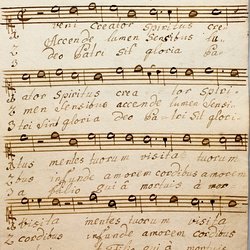 Veni Creator Spiritus cre
Accende lumen Sensibus
Deo Patri sit gloria Pa
ator Spiritus crea tor Spiri
men Sensibus accende lumen Sensi
tri sit gloria Deo Pa tri sit glori
tus mentes tuorum visita tuorum
bus infunde amorem cordibus amorem
a filio qui à mortuis à mor
Visita mentes tuorum visita
cordibus infunde amorem cordibus